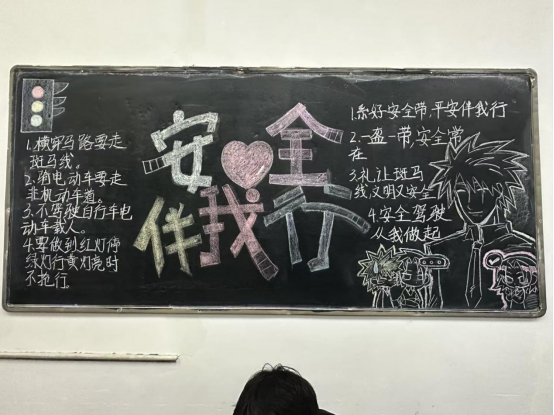 1.横穿马路要走
斑马线。
2.骑电动车要走
非机动车道。
3.不驾驶自行车电
动车载人。
4.要做到红灯停
绿灯行黄灯亮时
不抢行
安全
伴我行
1.系好安全带,平安伴我行
2.一盔一带,安全常
在
3.礼让斑马
线,文明又安全
4.安全驾驶
从我做起